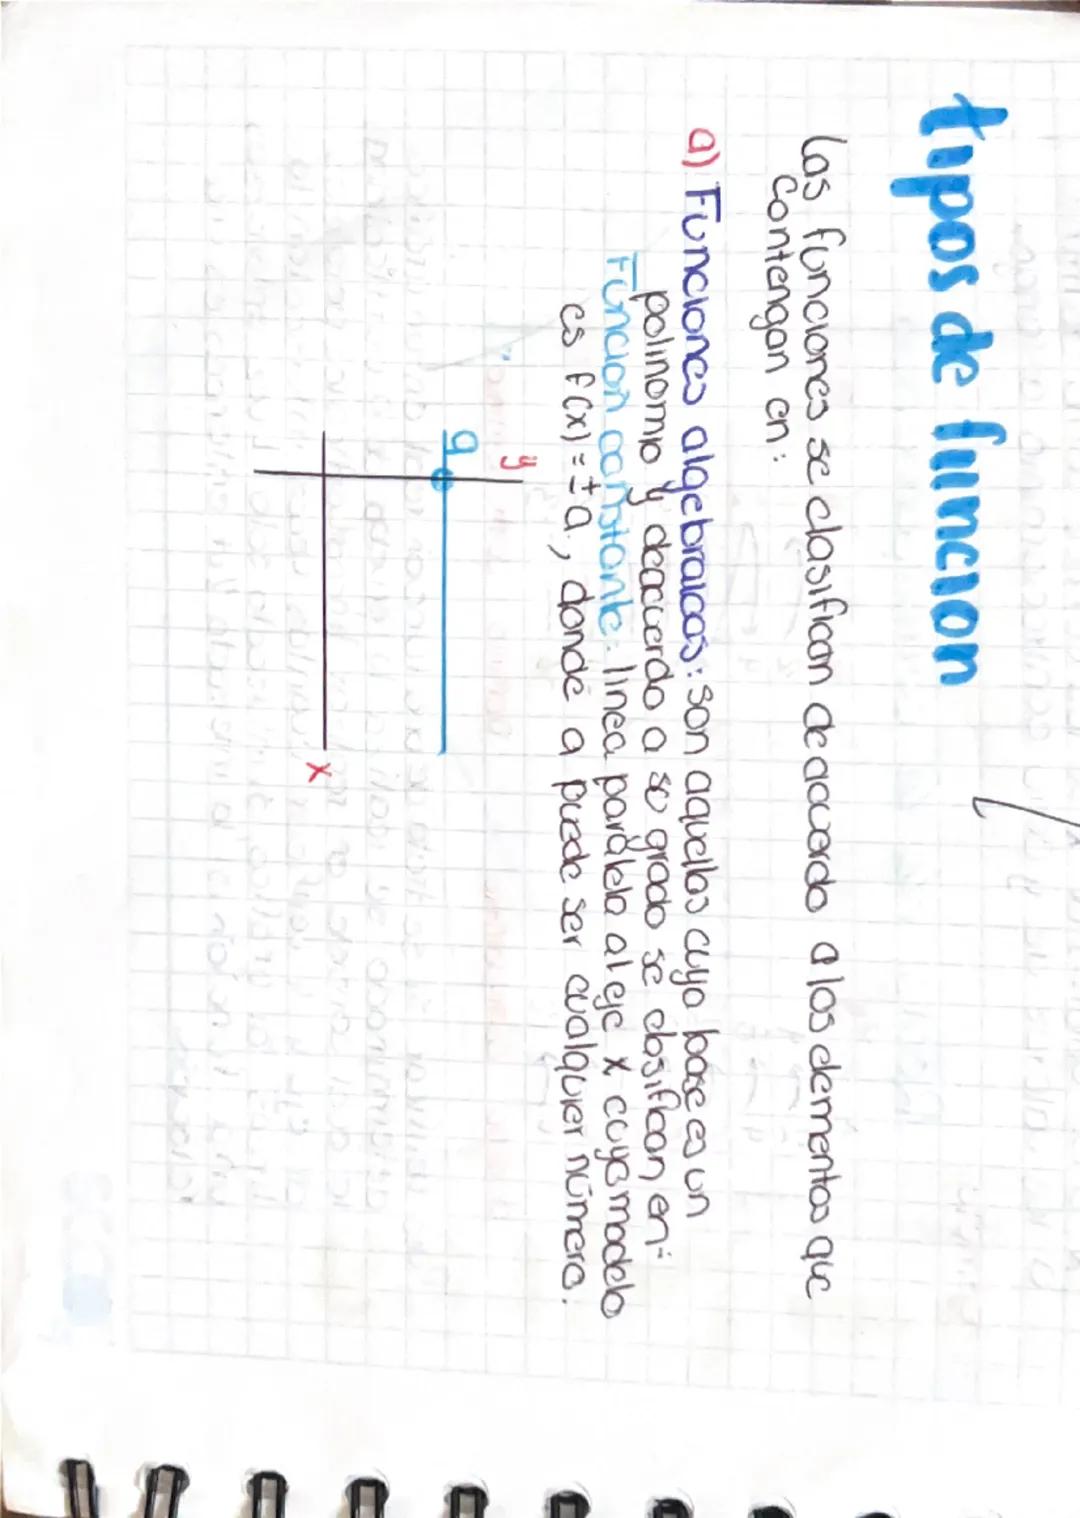 tipos de función
Las funciones se clasifican deacuerdo a los elementos que
contengan en:
a) Funciones algebraicas: son aquellas cuya base es un
polinomio y deacuerdo a su grado se clasifican en:
Función constante: linea paralela al eje x cuyo modelo
es f(x) = ±a, donde a puede ser cualquier número.
y
a
x